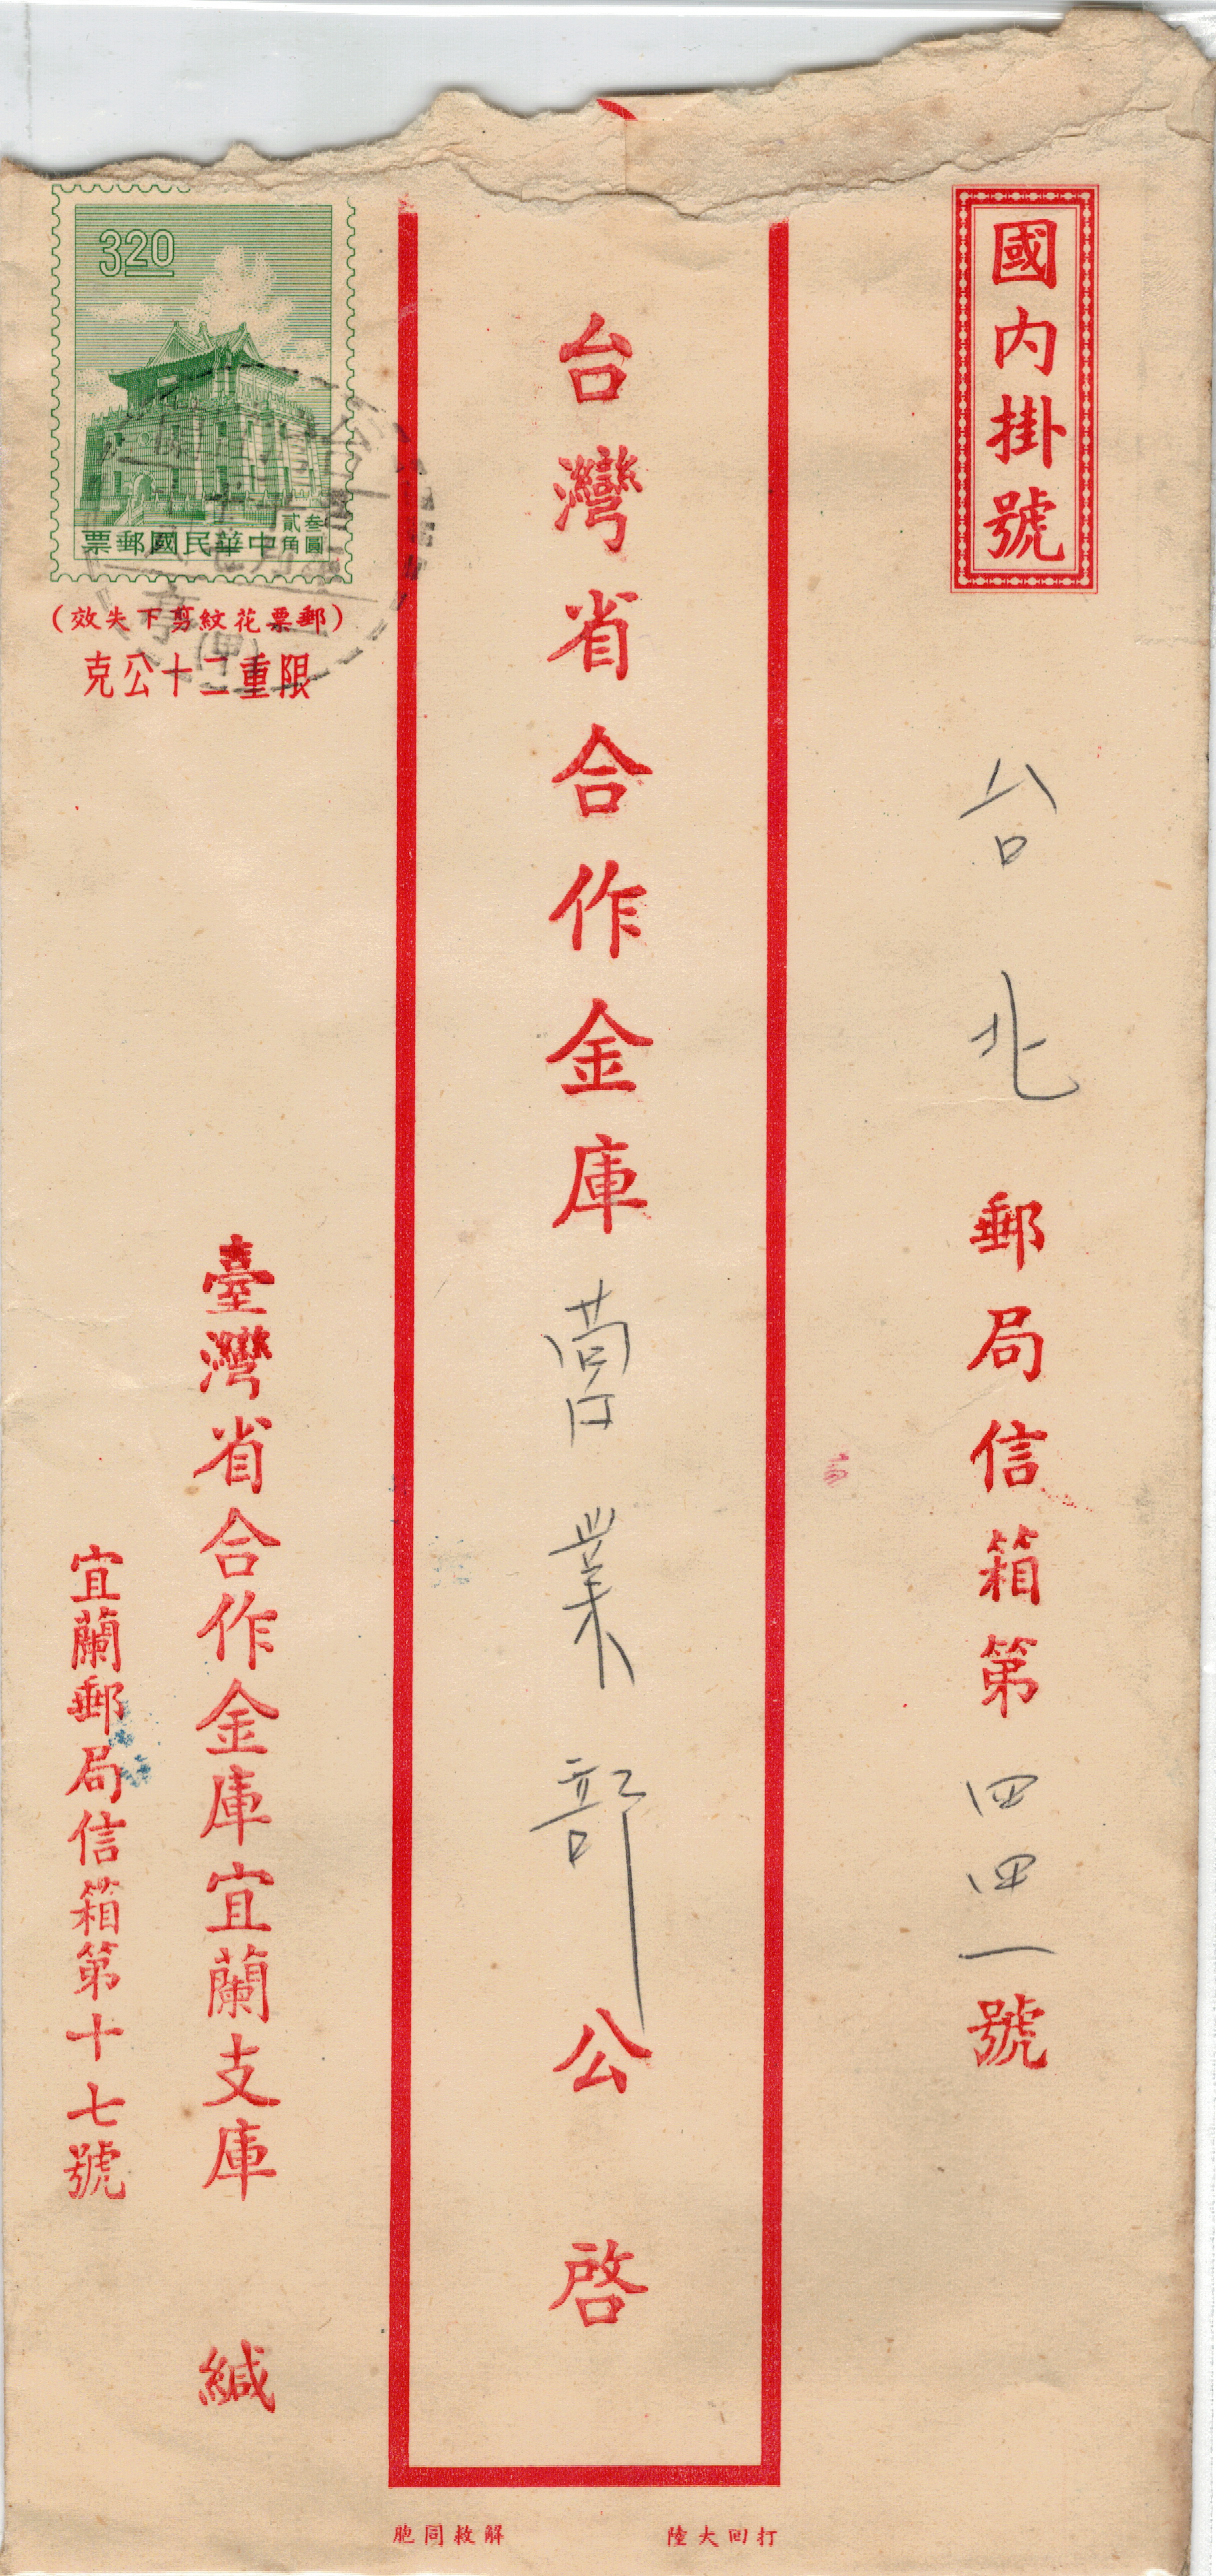 國內掛號
台北郵局信箱第四四一號
台灣省合作金庫營業部公啓
320
叁圓貳角
中華民國郵票
(郵票花紋剪下失效)
限重二十公克
臺灣省合作金庫宜蘭支庫 緘
宜蘭郵局信箱第十七號
打回大陸 解救同胞